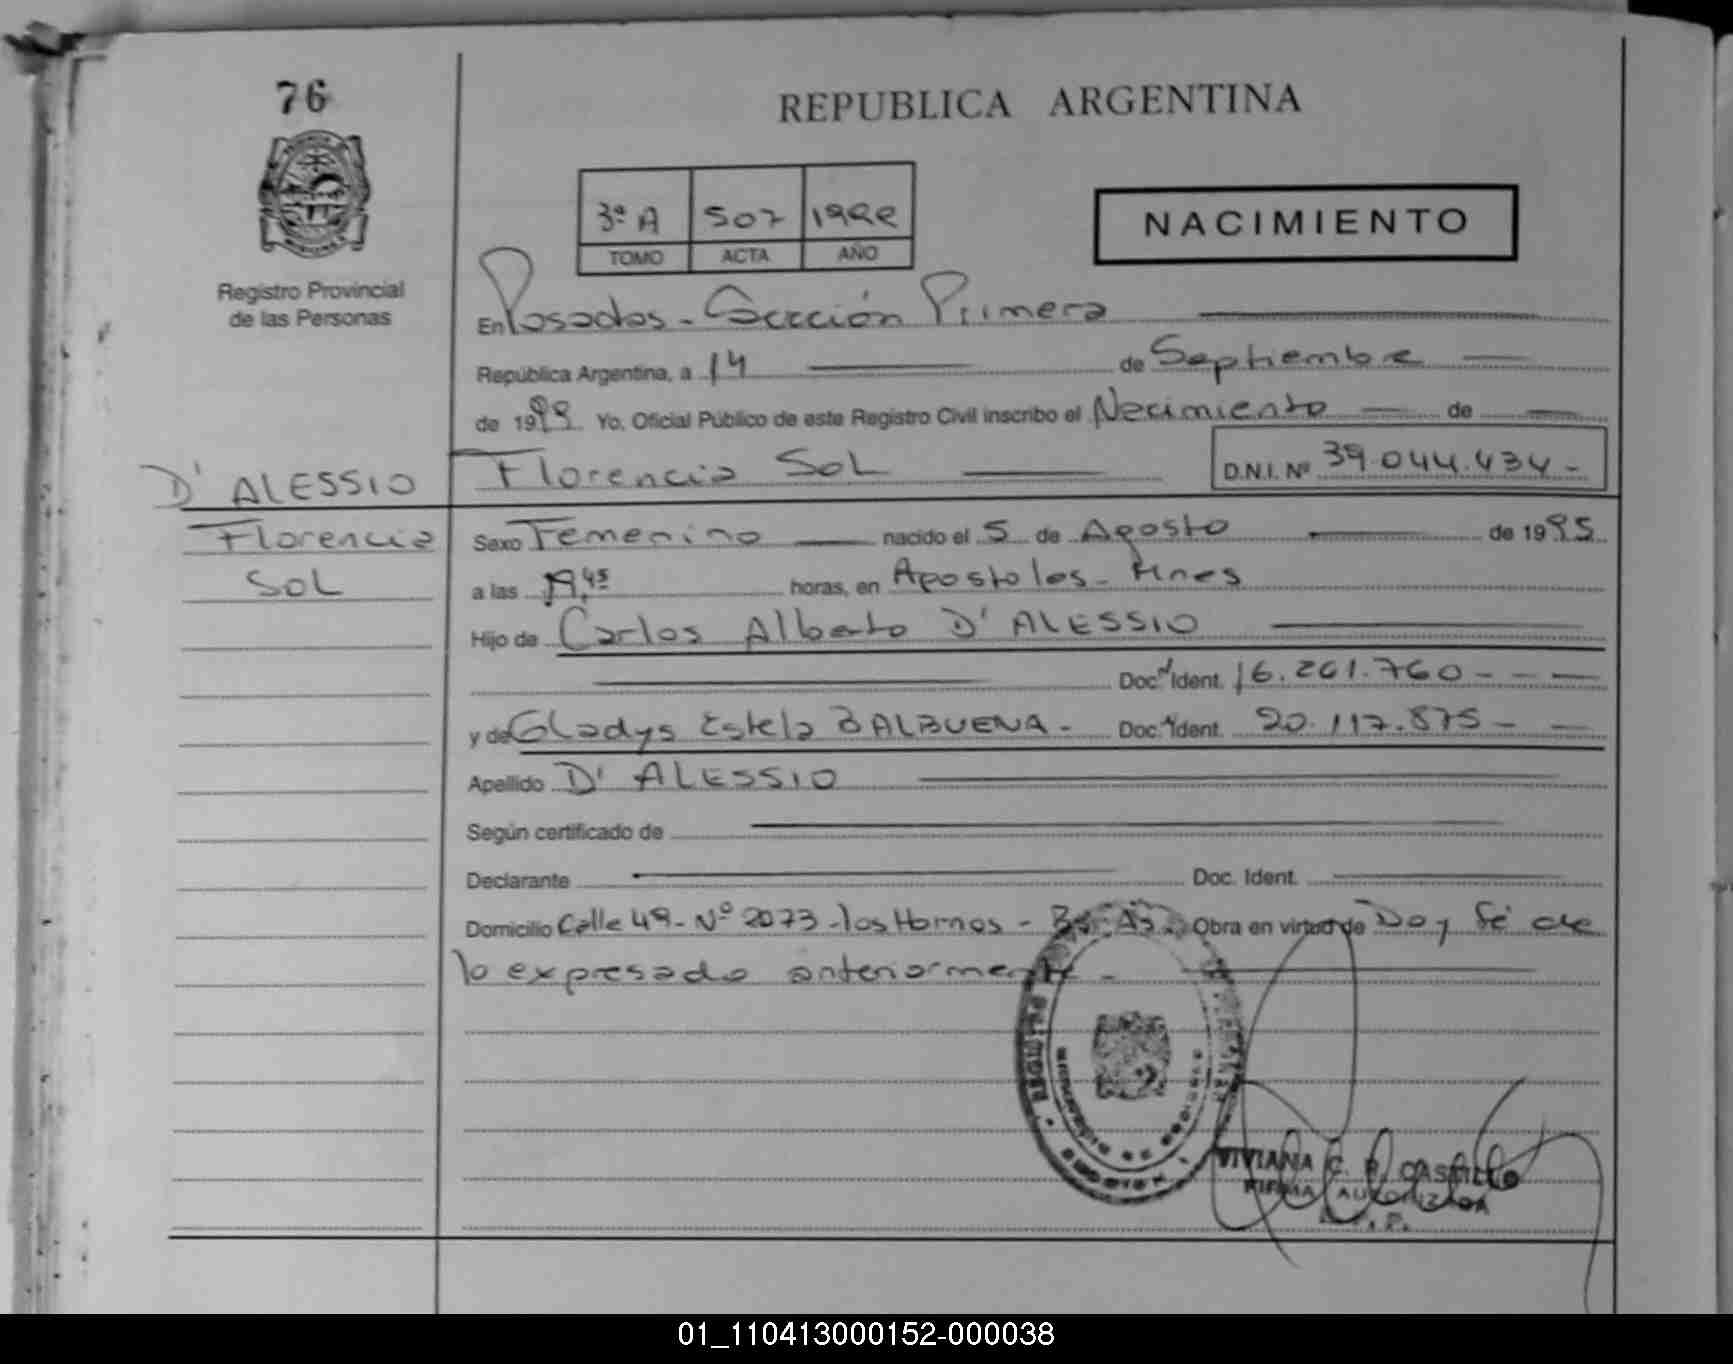 76
REPUBLICA ARGENTINA
3ª A 507 1999
TOMO ACTA AÑO
NACIMIENTO
Registro Provincial
de las Personas
En Posadas - Sección Primera
República Argentina, a 14 de Septiembre
de 1999 Yo, Oficial Público de este Registro Civil inscribo el Nacimiento de
D' ALESSIO Florencia Sol D.N.I. Nº 39.044.434-
Florencia Sexo Femenino nacido el 5 de Agosto de 1995
Sol a las 19,45 horas, en Apostoles - Mnes
Hijo de Carlos Alberto D' ALESSIO
Doc. Ident. 16.261.760 - - -
y de Gladys Estela BALBUENA - Doc. Ident. 20.117.875 - -
Apellido D' ALESSIO
Según certificado de
Declarante Doc. Ident.
Domicilio Calle 49 - Nº 2073 - los Hornos - Bs. As. Obra en virtud de Doy fé de
lo expresado anteriormente -
REGISTRO
VIVIANA C. CASTILLO
FIRMA AUTORIZADA
01_110413000152-000038